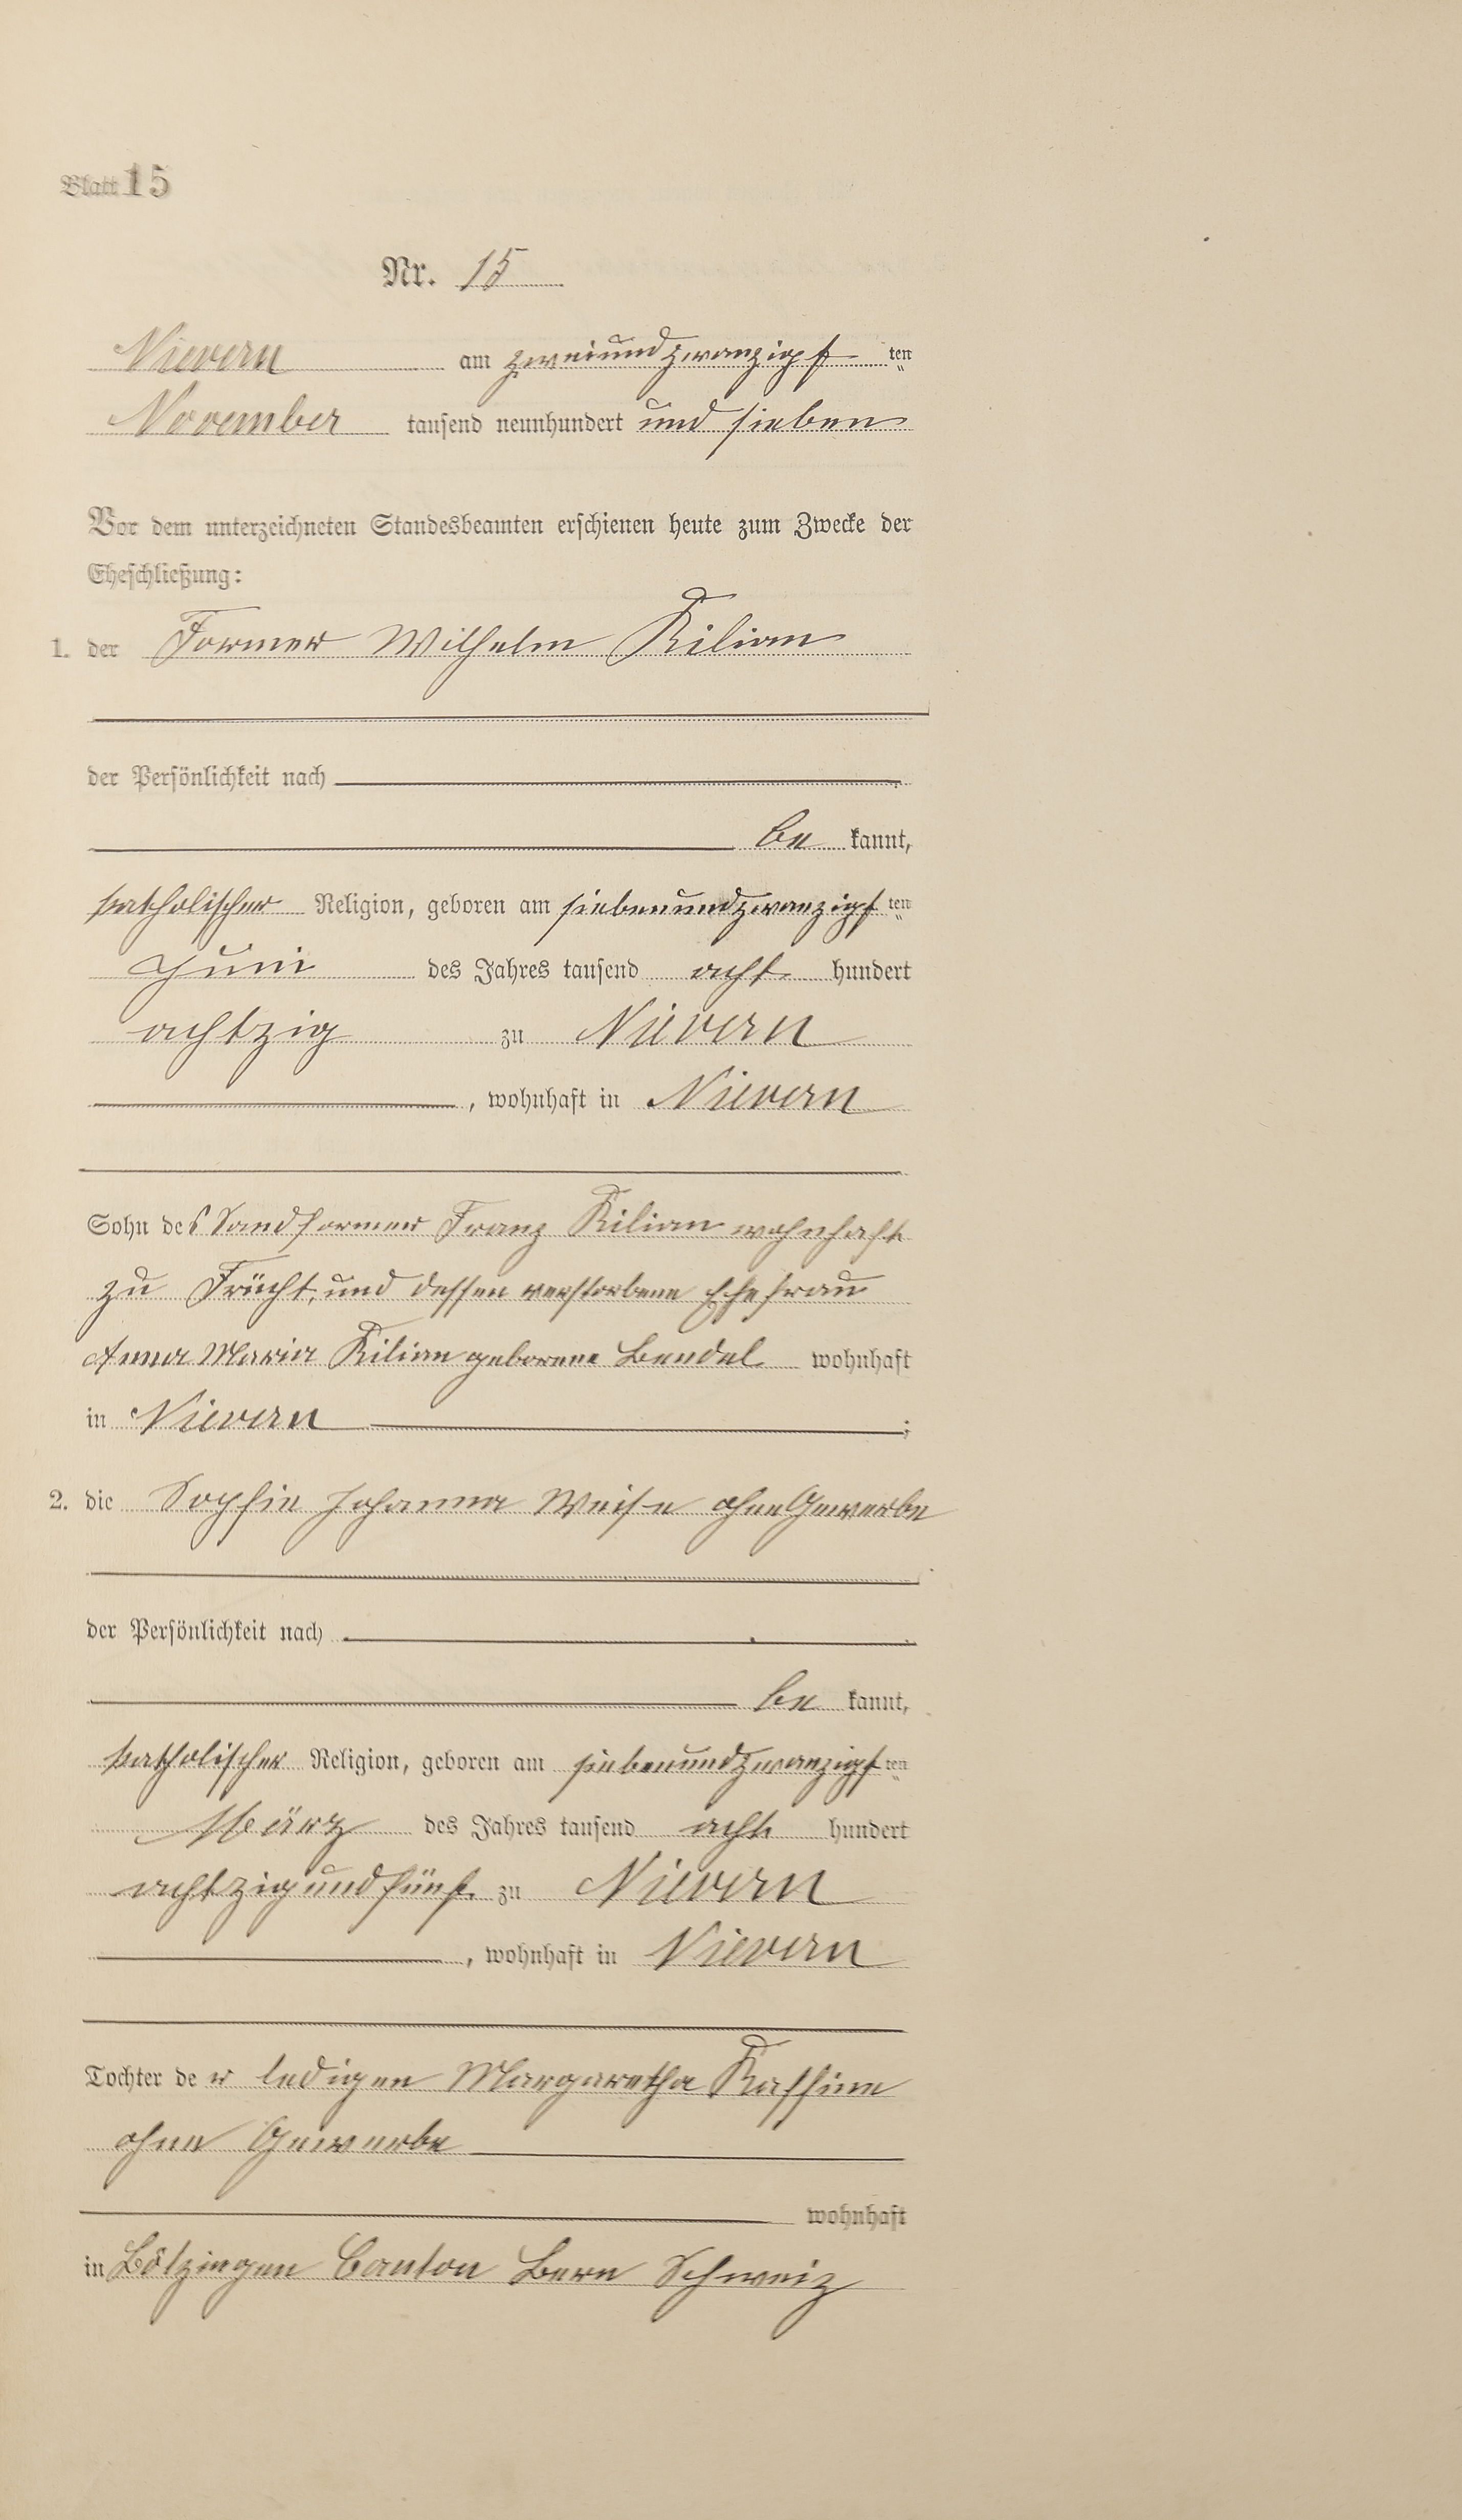 Blatt 15
Nr. 15
Nievern am zweiundzwanzigsten
November tausend neunhundert und sieben
Vor dem unterzeichneten Standesbeamten erschienen heute zum Zwecke der
Eheschließung:
1. der Former Wilhelm Kilian
der Persönlichkeit nach
be kannt,
katholischer Religion, geboren am siebenundzwanzigsten
Juni des Jahres tausend acht hundert
achtzig zu Nievern
, wohnhaft in Nievern
Sohn des Sandformer Franz Kilian wohnhaft
zu Frücht, und dessen verstorbene Ehefrau
Anna Maria Kilian geborene Bendel wohnhaft
in Nievern ;
2. die Sophie Johanna Weise ohne Gewerbe
der Persönlichkeit nach
be kannt,
katholischer Religion, geboren am siebenundzwanzigsten
März des Jahres tausend acht hundert
achtzig und fünf zu Nievern
, wohnhaft in Nievern
Tochter der ledigen Margaretha
ohne Gewerbe
wohnhaft
in Bötzingen Canton Bern Schweiz